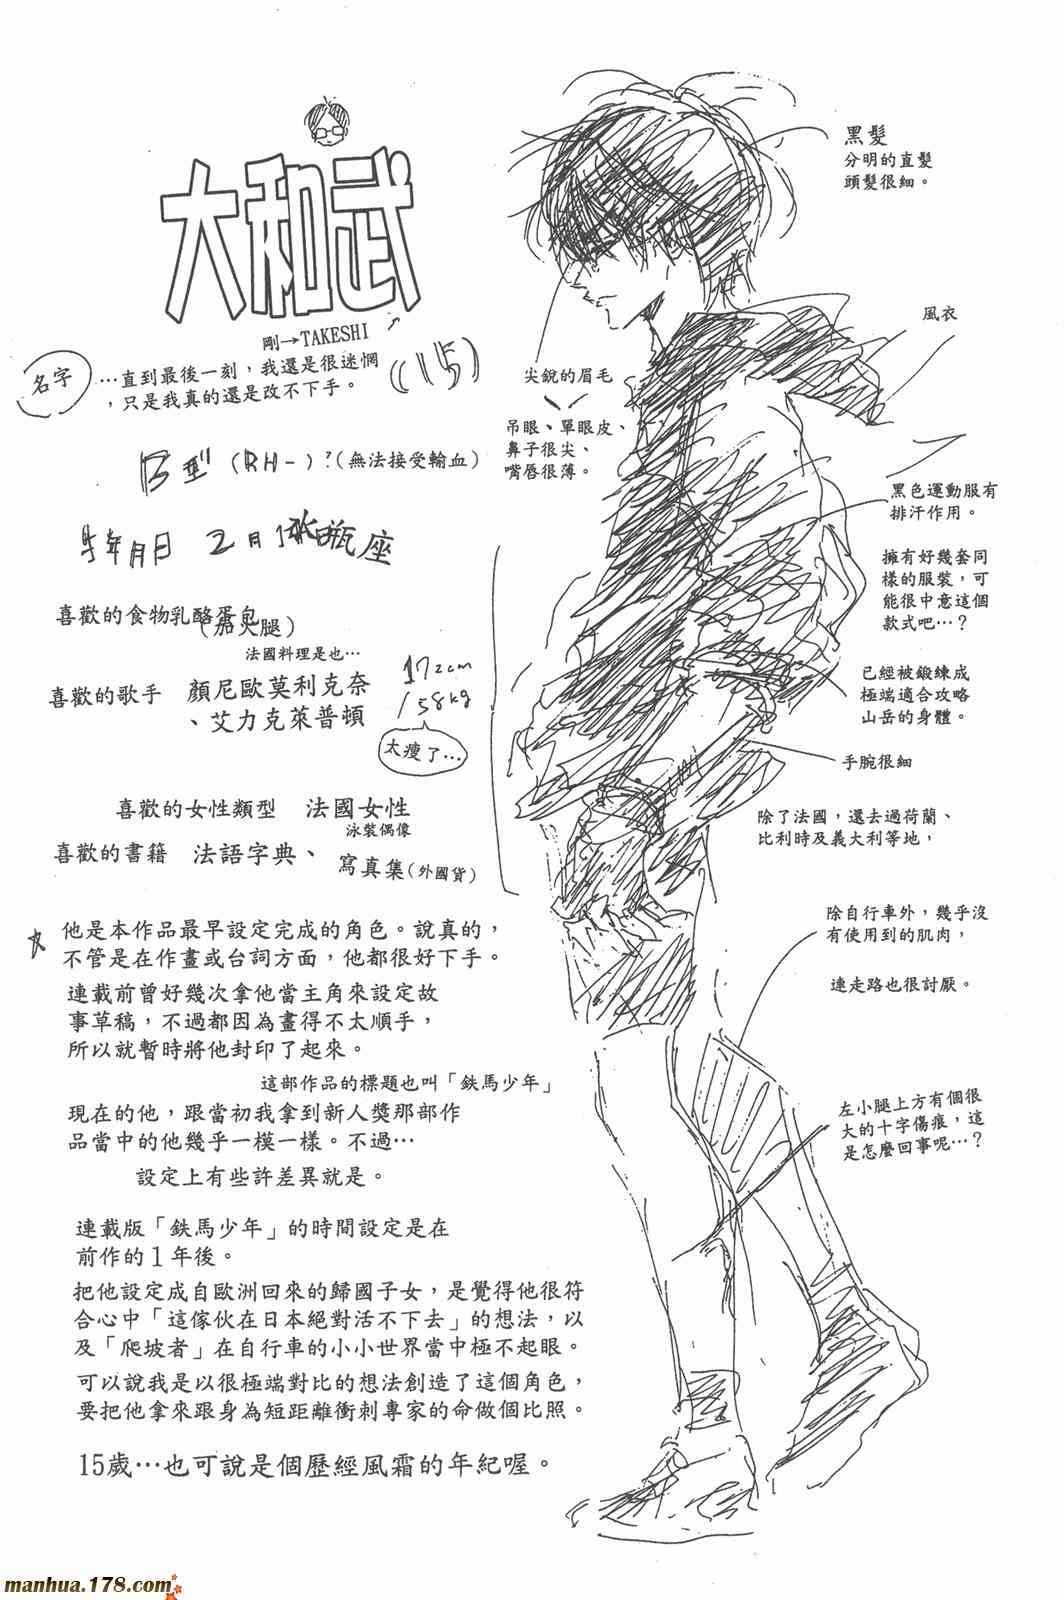 大和武
剛→TAKESHI
(15)
名字
…直到最後一刻，我還是很迷惘
，只是我真的還是改不下手。
B型 (RH-)?(無法接受輸血)
年月日 2月 水瓶座
喜歡的食物乳酪蛋包
(加火腿)
法國料理是也…
喜歡的歌手 顏尼歐莫利克奈
、艾力克萊普頓
172cm
/58kg
太瘦了…
喜歡的女性類型 法國女性
泳裝偶像
喜歡的書籍 法語字典、
寫真集(外國貨)
他是本作品最早設定完成的角色。說真的，
不管是在作畫或台詞方面，他都很好下手。
連載前曾好幾次拿他當主角來設定故
事草稿，不過都因為畫得不太順手，
所以就暫時將他封印了起來。
這部作品的標題也叫「鉄馬少年」
現在的他，跟當初我拿到新人獎那部作
品當中的他幾乎一模一樣。不過…
設定上有些許差異就是。
連載版「鉄馬少年」的時間設定是在
前作的1年後。
把他設定成自歐洲回來的歸國子女，是覺得他很符
合心中「這傢伙在日本絕對活不下去」的想法，以
及「爬坡者」在自行車的小小世界當中極不起眼。
可以說我是以很極端對比的想法創造了這個角色，
要把他拿來跟身為短距離衝刺專家的命做個比照。
15歲…也可說是個歷經風霜的年紀喔。
黑髮
分明的直髮
頭髮很細。
風衣
尖銳的眉毛
吊眼、單眼皮、
鼻子很尖、
嘴唇很薄。
黑色運動服有
排汗作用。
擁有好幾套同
樣的服裝，可
能很中意這個
款式吧…？
已經被鍛練成
極端適合攻略
山岳的身體。
手腕很細
除了法國，還去過荷蘭、
比利時及義大利等地，
除自行車外，幾乎沒
有使用到的肌肉，
連走路也很討厭。
左小腿上方有個很
大的十字傷痕，這
是怎麼回事呢…？
manhua.178.com